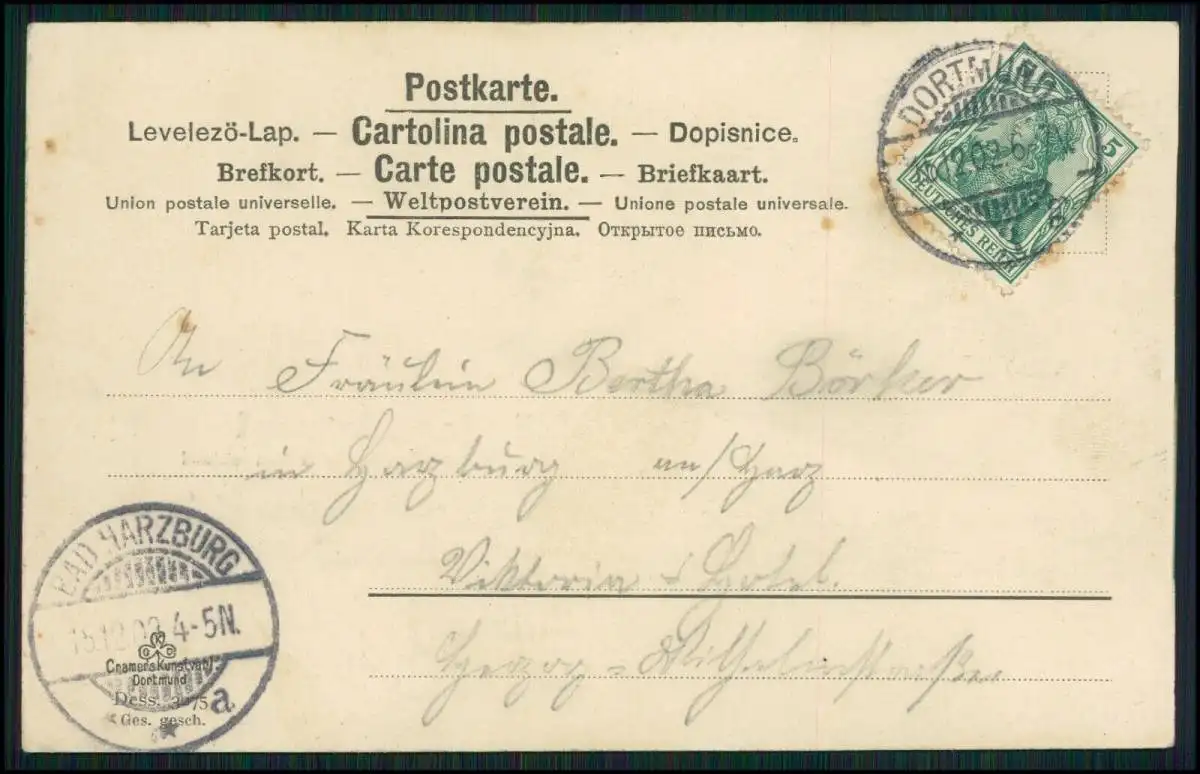 Postkarte.
Levelezö-Lap. — Cartolina postale. — Dopisnice.
Brefkort. — Carte postale. — Briefkaart.
Union postale universelle. — Weltpostverein. — Unione postale universale.
Tarjeta postal. Karta Korespondencyjna. Открытое письмо.
DORTMUND
12.02. 6-7N
5
DEUTSCHES REICH
An Fräulein Bertha Börker
in Harzburg an/Harz
Viktoria-Hotel.
Herzog-Wilhelmstraße
BAD HARZBURG
15.12.02 4-5N.
Cramers Kunstverl.
Dortmund
Dess. 3275
Ges. gesch.
a